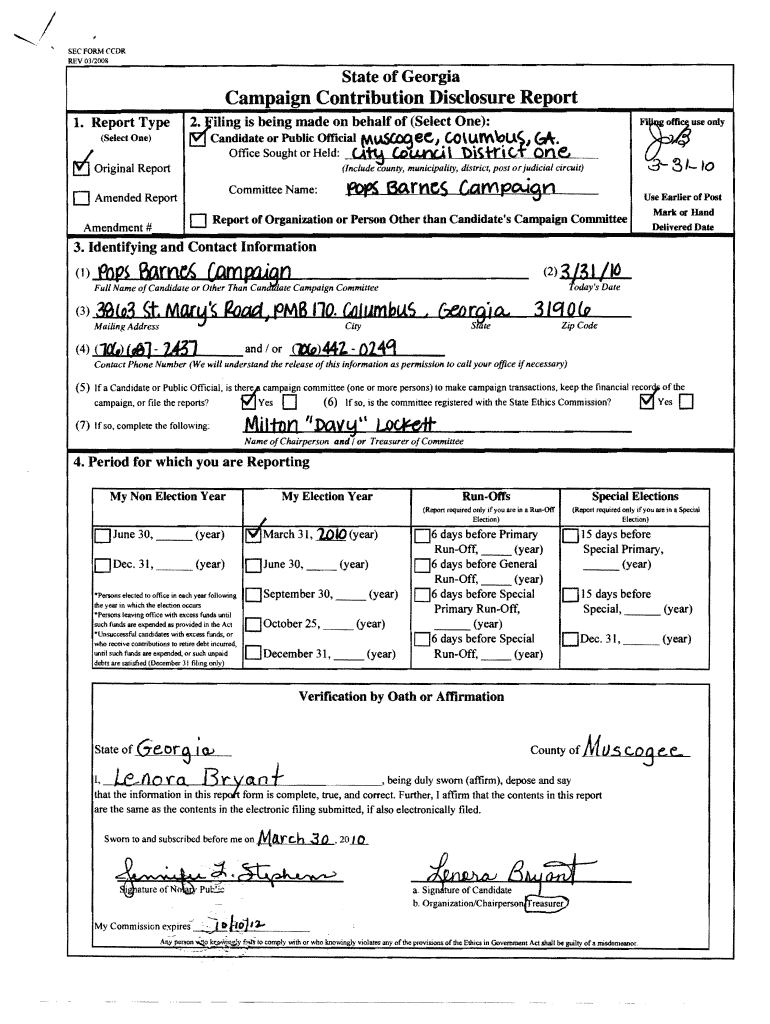 SEC FORM CCDR
REV 03/2008
State of Georgia
Campaign Contribution Disclosure Report
1. Report Type
(Select One)
Original Report
Amended Report
Amendment #
2. Filing is being made on behalf of (Select One):
Candidate or Public Official Muscogee, Columbus, GA.
Office Sought or Held: City Council District One
(Include county, municipality, district, post or judicial circuit)
Committee Name: Pops Barnes Campaign
Report of Organization or Person Other than Candidate's Campaign Committee
Filing office use only
3-31-10
Use Earlier of Post
Mark or Hand
Delivered Date
3. Identifying and Contact Information
(1) Pops Barnes Campaign (2) 3/31/10
Full Name of Candidate or Other Than Candidate Campaign Committee Today's Date
(3) 3863 St. Mary's Road, PMB 170. Columbus, Georgia 31906
Mailing Address City State Zip Code
(4) (706) 687-2437 and / or (706) 442-0249
Contact Phone Number (We will understand the release of this information as permission to call your office if necessary)
(5) If a Candidate or Public Official, is there a campaign committee (one or more persons) to make campaign transactions, keep the financial records of the
campaign, or file the reports? Yes (6) If so, is the committee registered with the State Ethics Commission? Yes
(7) If so, complete the following: Milton "Davy" Lockett
Name of Chairperson and / or Treasurer of Committee
4. Period for which you are Reporting
My Non Election Year
June 30, ______ (year)
Dec. 31, ______ (year)
*Persons elected to office in each year following
the year in which the election occurs
*Persons leaving office with excess funds until
such funds are expended as provided in the Act
*Unsuccessful candidates with excess funds, or
who receive contributions to retire debt incurred,
until such funds are expended, or such unpaid
debts are satisfied (December 31 filing only)
My Election Year
March 31, 2010 (year)
June 30, _____ (year)
September 30, _____ (year)
October 25, _____ (year)
December 31, _____ (year)
Run-Offs
(Report required only if you are in a Run-Off
Election)
6 days before Primary
Run-Off, _____ (year)
6 days before General
Run-Off, _____ (year)
6 days before Special
Primary Run-Off,
______ (year)
6 days before Special
Run-Off, _____ (year)
Special Elections
(Report required only if you are in a Special
Election)
15 days before
Special Primary,
______ (year)
15 days before
Special, ______ (year)
Dec. 31, _____ (year)
Verification by Oath or Affirmation
State of Georgia County of Muscogee
I, Lenora Bryant, being duly sworn (affirm), depose and say
that the information in this report form is complete, true, and correct. Further, I affirm that the contents in this report
are the same as the contents in the electronic filing submitted, if also electronically filed.
Sworn to and subscribed before me on March 30, 2010
Jennifer L. Stephens Lenora Bryant
Signature of Notary Public a. Signature of Candidate
b. Organization/Chairperson/Treasurer
My Commission expires 10/10/12
Any person who knowingly fails to comply with or who knowingly violates any of the provisions of the Ethics in Government Act shall be guilty of a misdemeanor.